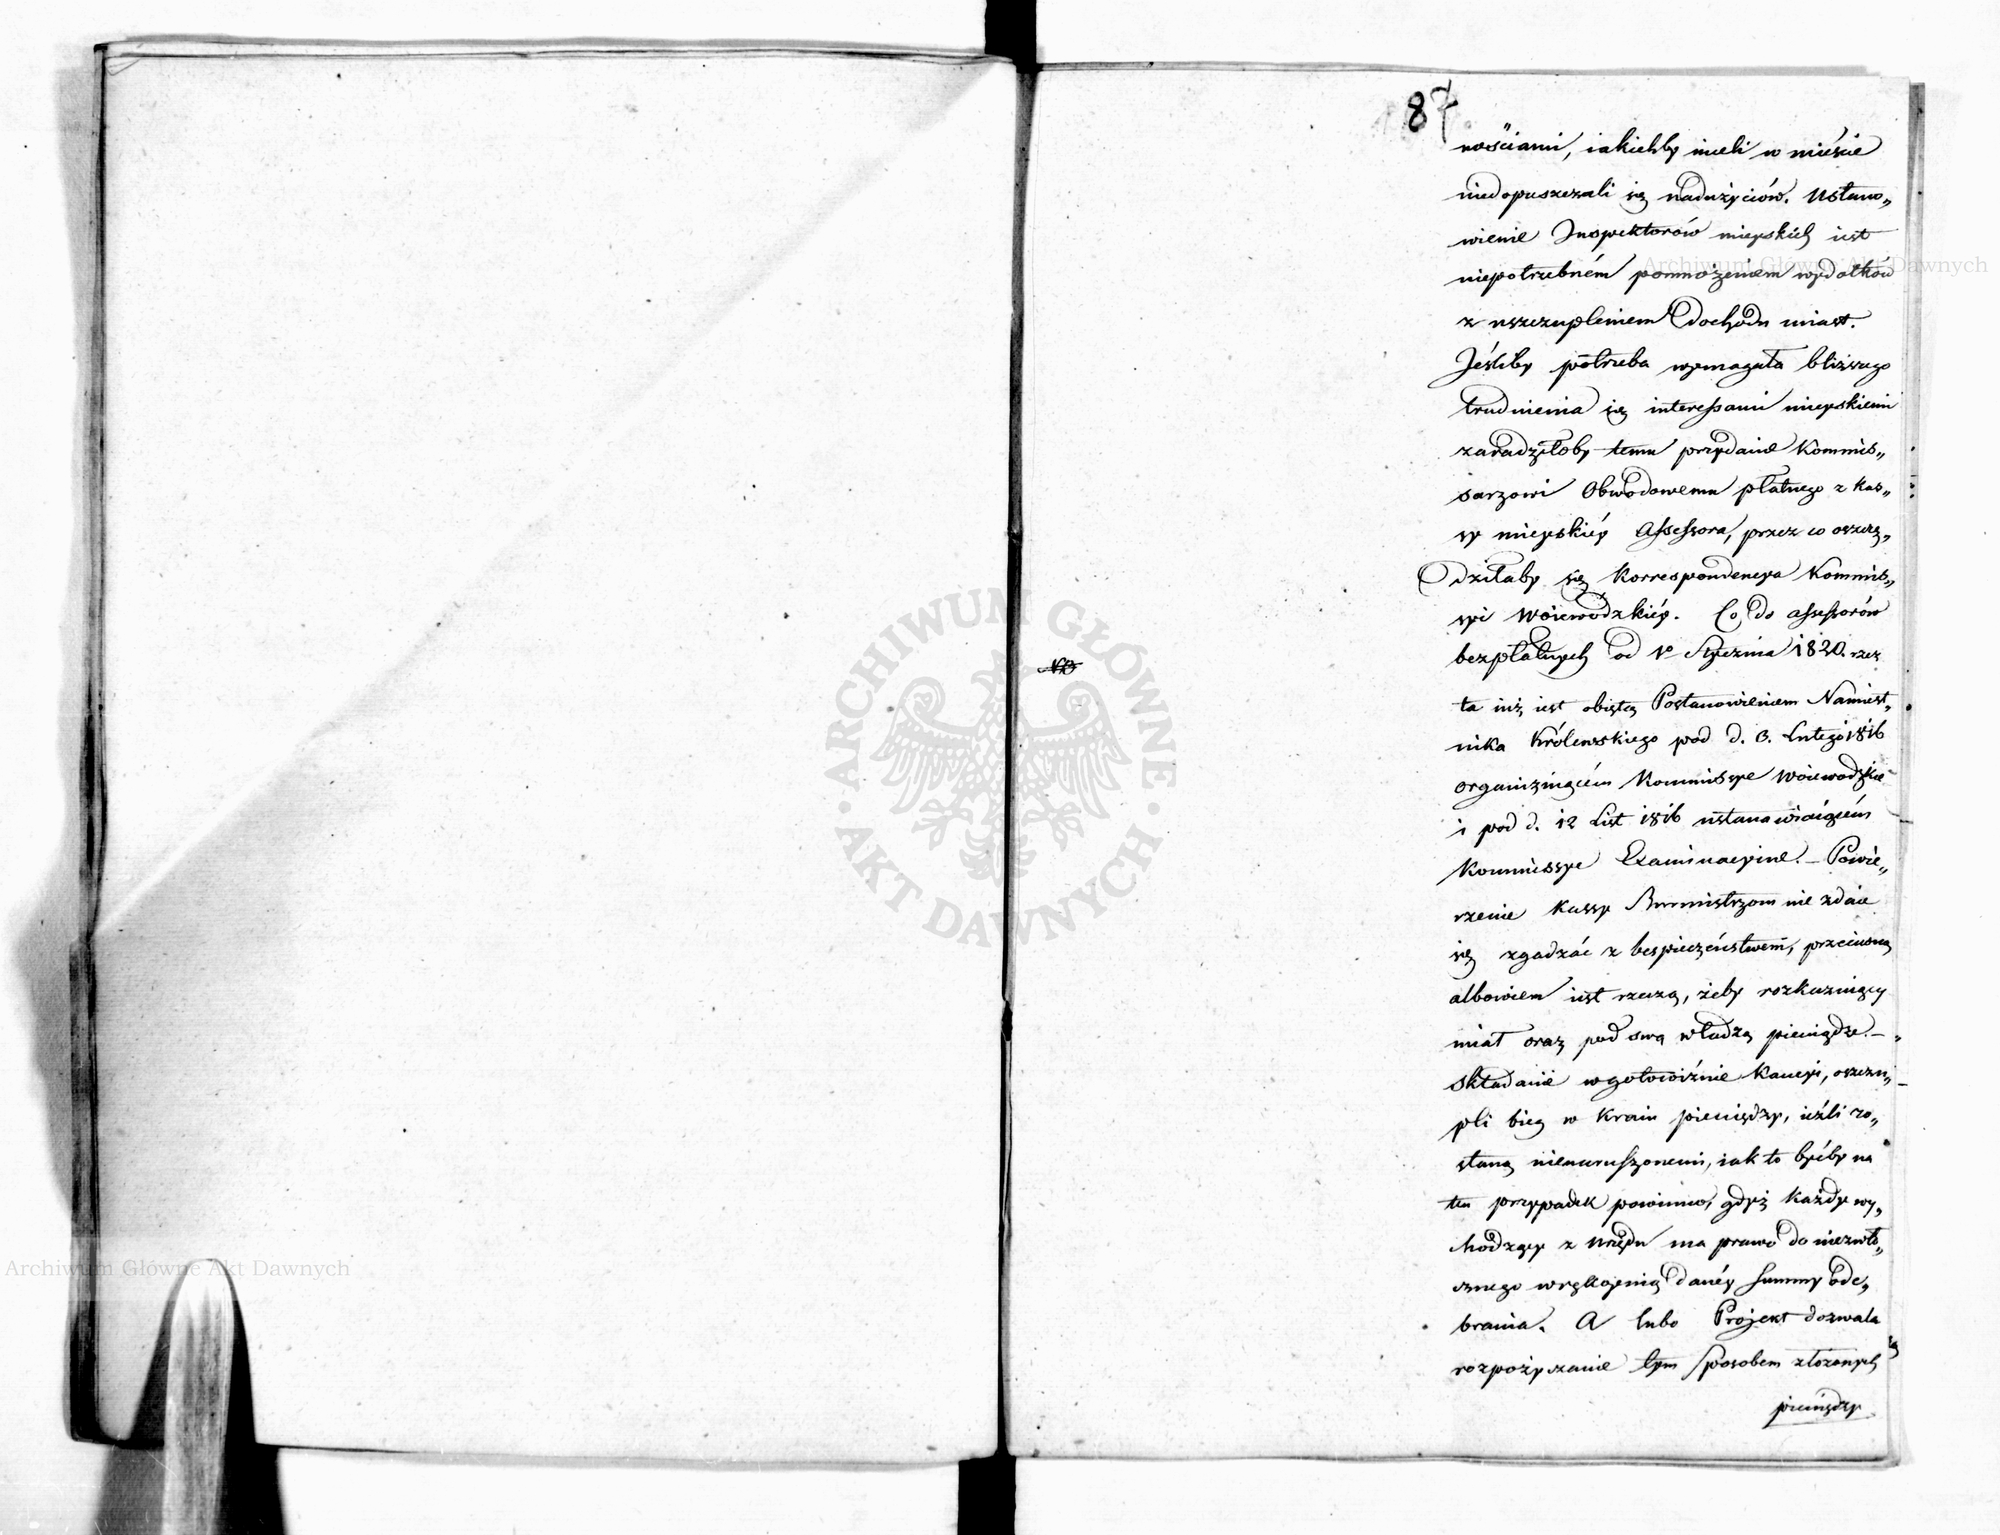 87
nościami, iakichby mieli w mieście
niedopuszczali się nadużyciów. Ustano„
wienie Inspektorów mieyskich iest
niepotrzebném pomnożeniem wydatków
z uszczupleniem Dochodu miast.
Jeśliby potrzeba wymagała bliższego
trudnienia się interessami mieyskiemi
zaradziłoby temu przydanie Kommis„
sarzowi Obwodowemu płatnego z kas„
sy mieyskiéy Assessora, przez co oszczę„
dziłaby się Korrespondencya Kommis„
syi Woiewódzkiéy. Co do assessorów
bezpłatnych od 1o Stycznia 1820. rzecz
ta iuż iest obiętą Postanowieniem Namiest„
nika Królewskiego pod d. 3. Lutego 1816
organizuiącém Kommissye Woiewodzkie
i pod d. 12 List 1816 ustanawiaiącém
Kommissye Examinacyine. – Powie„
rzenie Kassy Burmistrzom nie zdaie
się zgadzać z bespieczeństwem, przeciwną
albowiem iest rzeczą, żeby rozkazuiący
miał oraz pod swą władzą pieniądze. –
Składanie w gotowiźnie Kaucyi, oszczu„
pli bieg w Kraiu pieniędzy, ieźli zo„
staną nienaruszonemi, iak to byćby na
ten przypadek powinno, gdyż każdy wy„
chodzący z urzędu ma prawo do niezwło„
cznego w rękoymią danéy summy ode„
brania. A lubo Projekt dozwala
rozpożyczanie tym sposobem złożonych
pieniędzy
ARCHIWUM GŁÓWNE AKT DAWNYCH
Archiwum Główne Akt Dawnych
Archiwum Główne Akt Dawnych